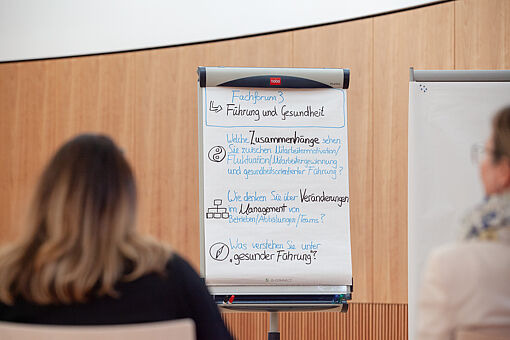 nobo
Fachforum 3
Führung und Gesundheit
Welche Zusammenhänge sehen
Sie zwischen Mitarbeitermotivation/
Fluktuation/Mitarbeitergewinnung
und gesundheitsorientierter Führung?
Wie denken Sie über Veränderungen
im Management von
Betrieben/Abteilungen/Teams?
Was verstehen Sie unter
"gesunder Führung"?